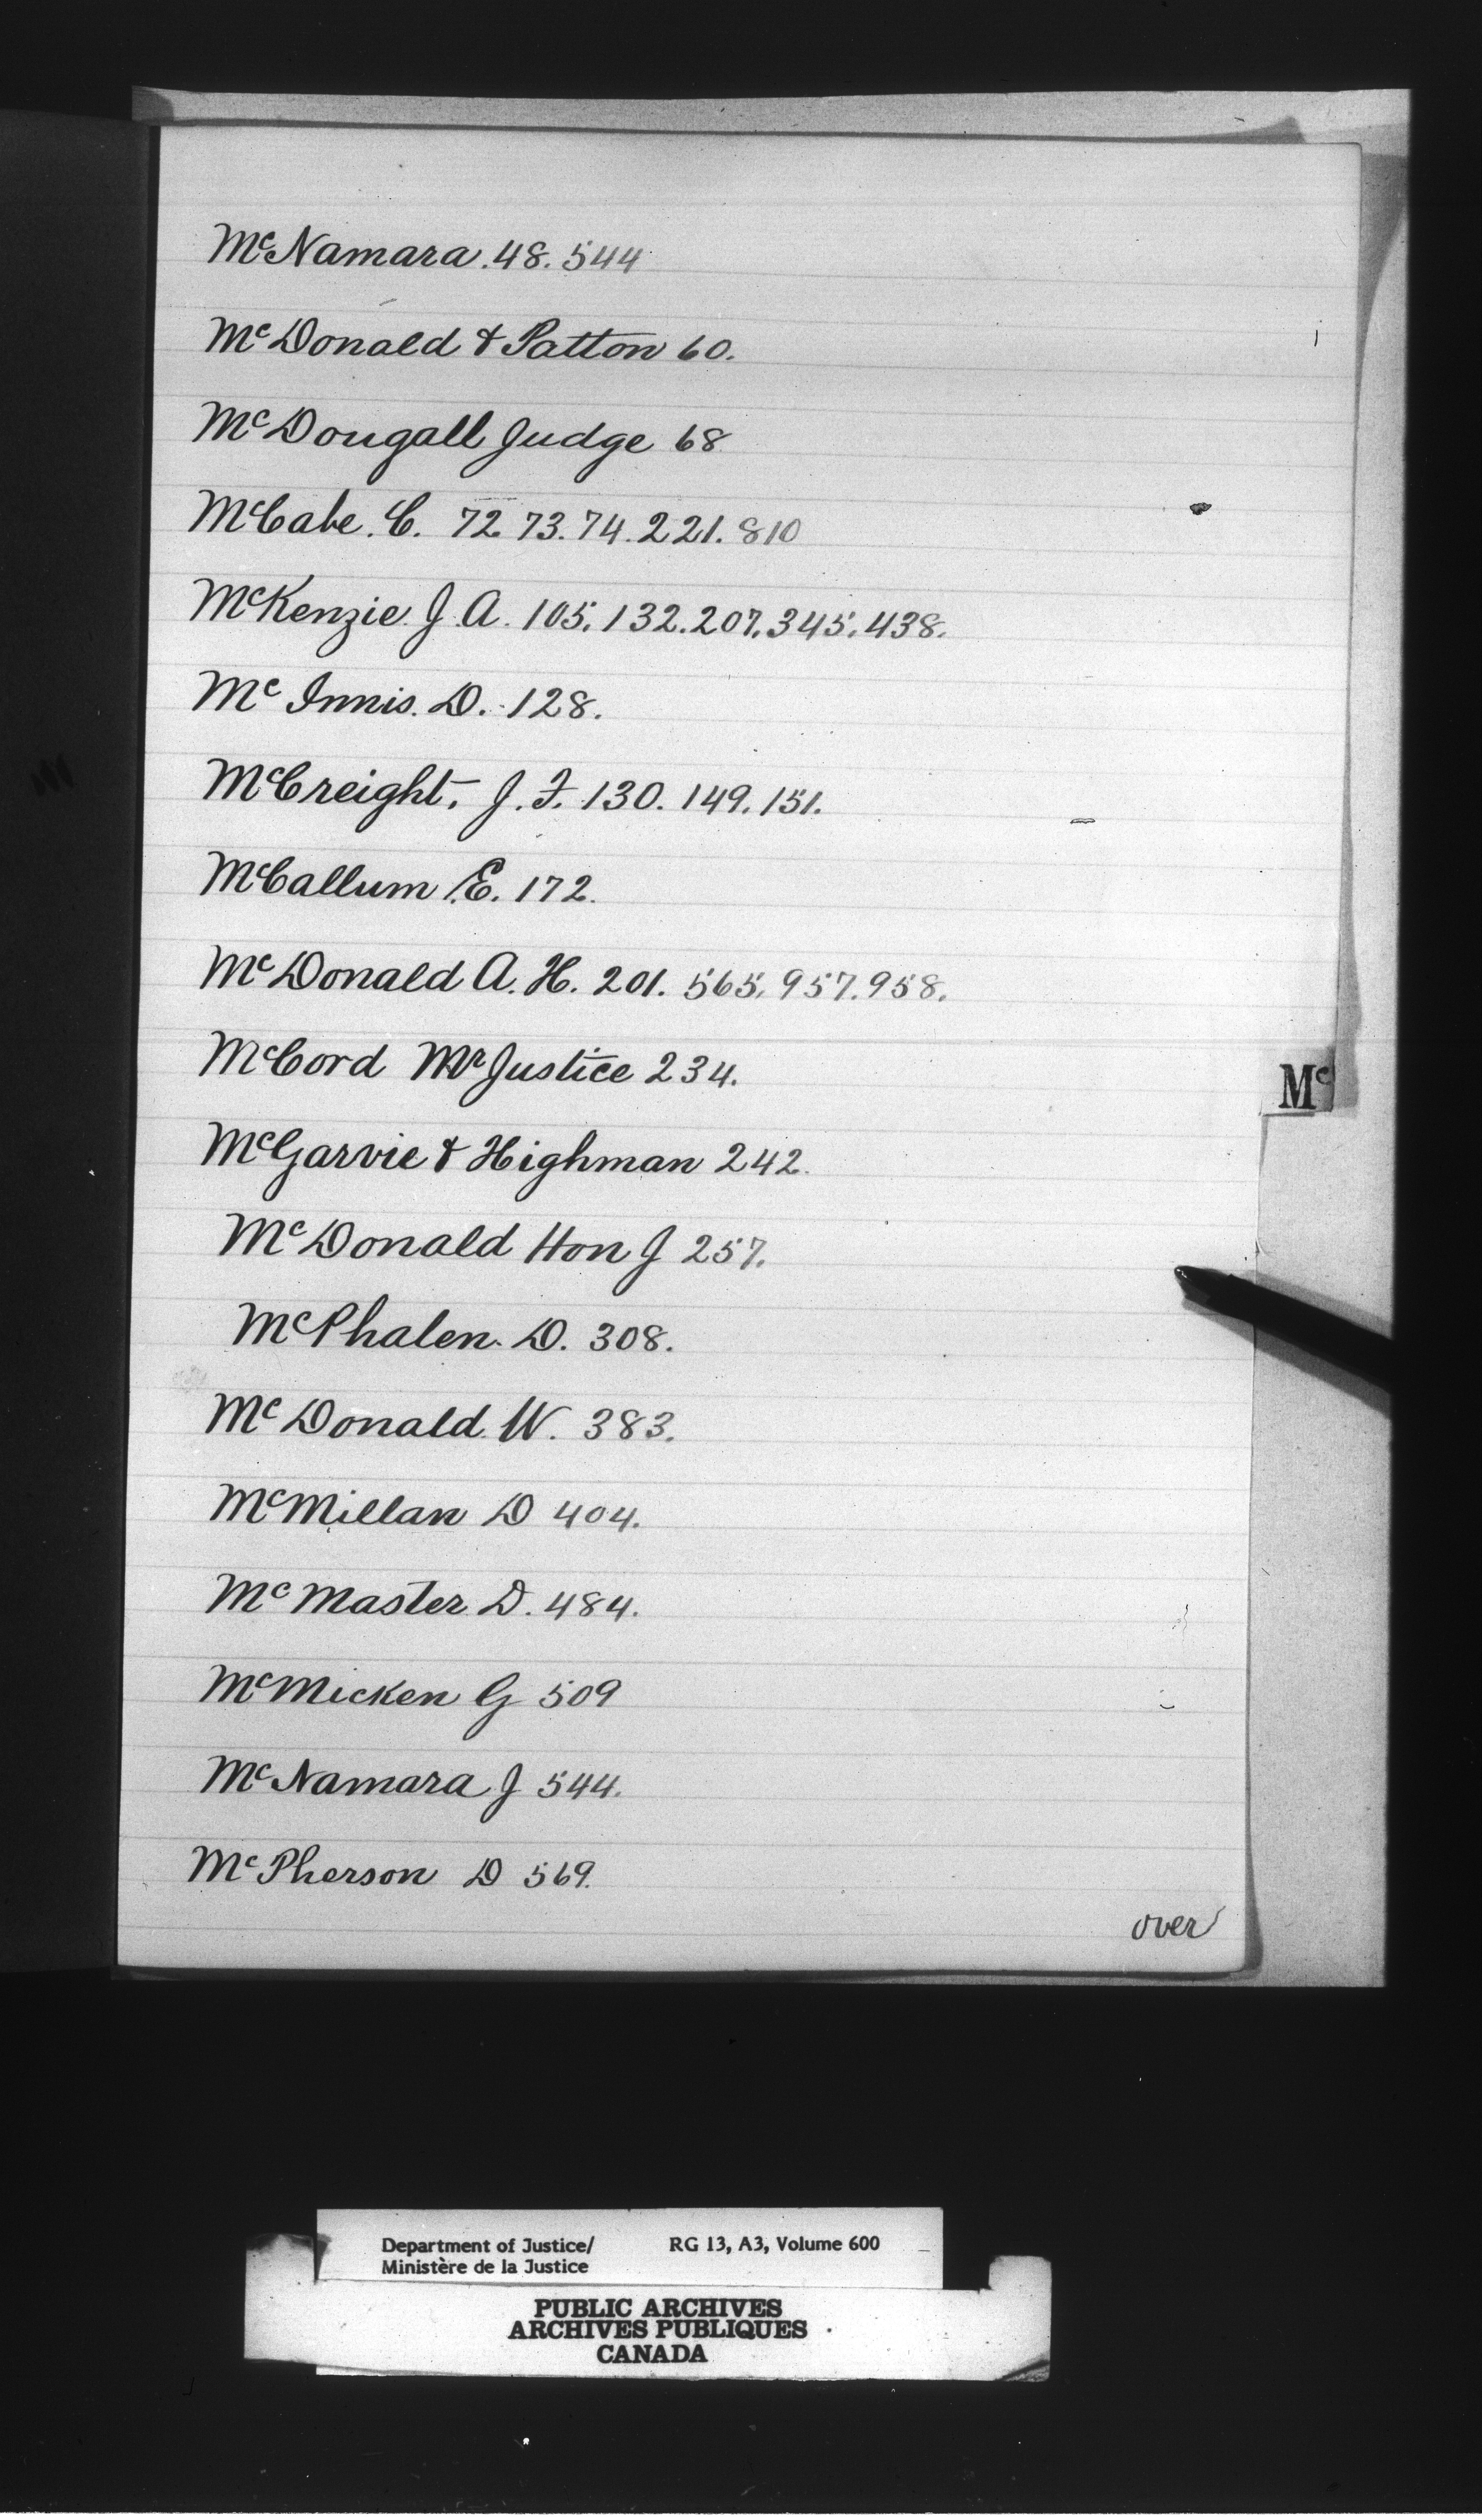 McNamara. 48. 544
McDonald & Patton 60.
McDougall Judge 68
McCabe. C. 72 73. 74. 221. 810
McKenzie J. A. 105. 132. 207. 345. 438.
Mc Innis. D. 128.
McCreight, J. F. 130. 149. 151.
McCallum E. 172.
McDonald A. H. 201. 565. 957. 958.
McCord Mr Justice 234.
Mc
McGarvie & Highman 242.
McDonald Hon J 257.
McPhalen. D. 308.
McDonald. W. 383.
McMillan D 404.
McMaster D. 484.
McMicken G 509
McNamara J 544.
McPherson D 569.
over
Department of Justice/ RG 13, A3, Volume 600
Ministère de la Justice
PUBLIC ARCHIVES
ARCHIVES PUBLIQUES
CANADA